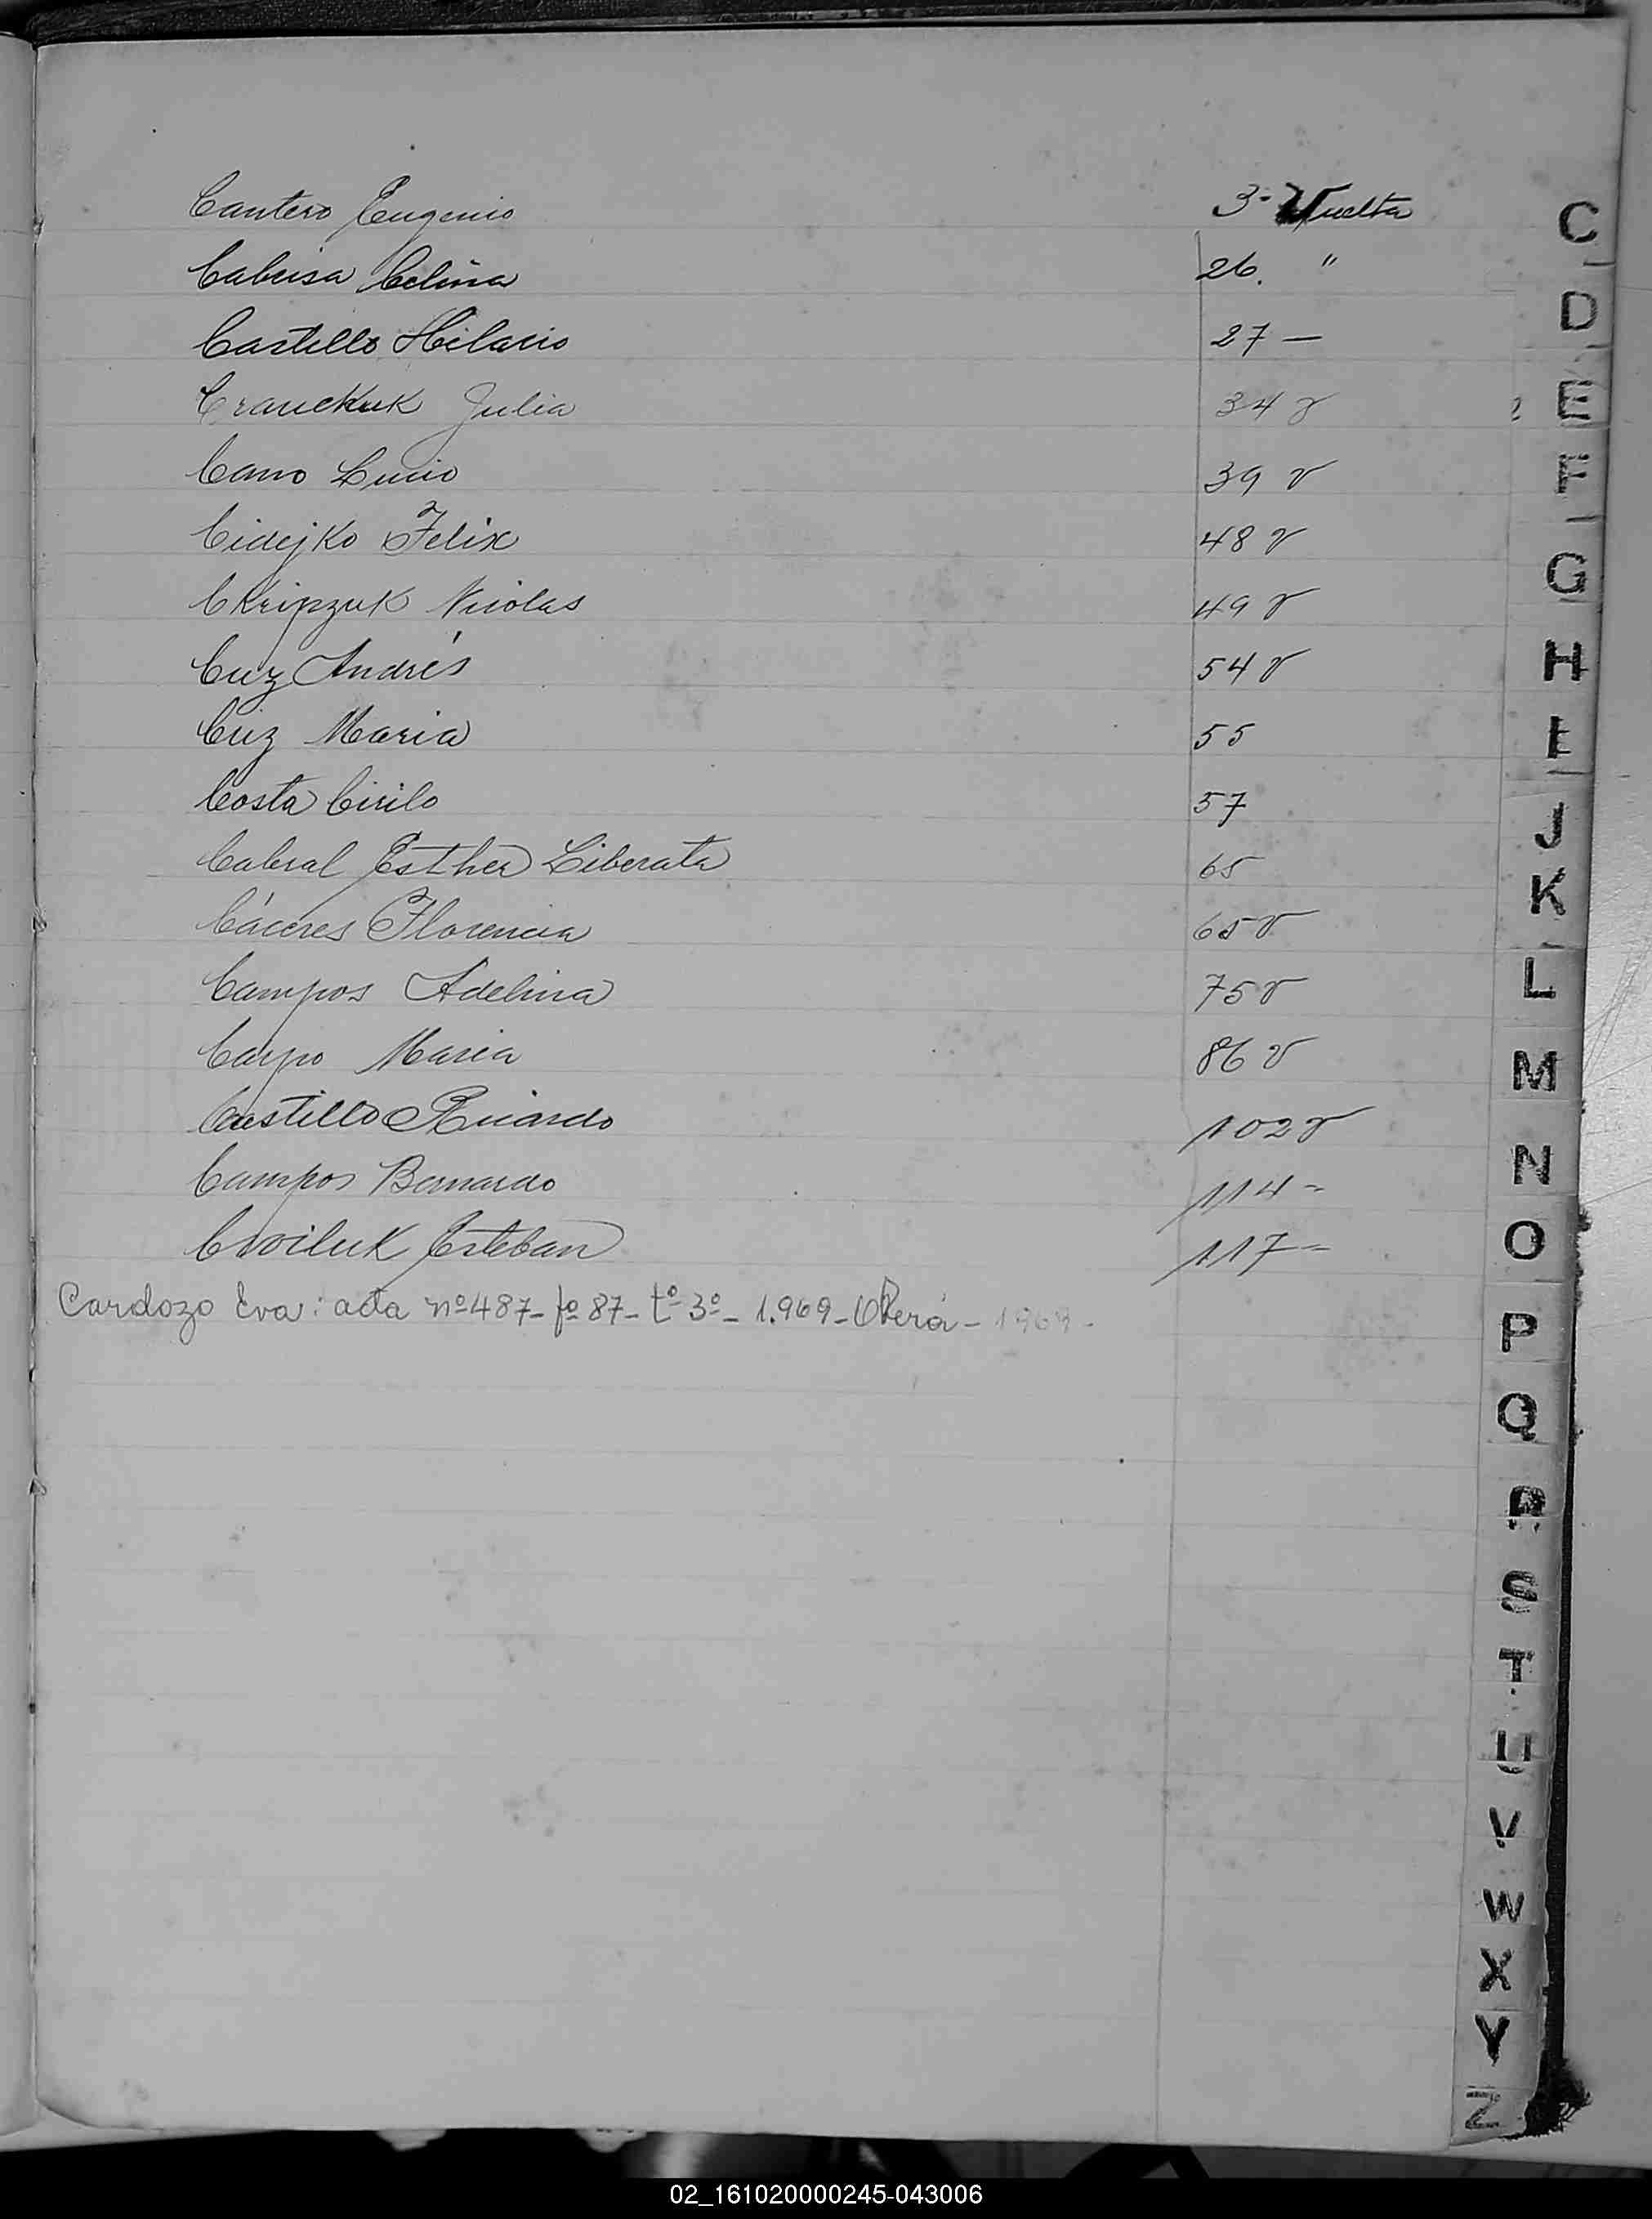 Cantero Eugenio 3- Vuelta
Cabeisa Celina 26. "
Castillo Hilario 27 —
Crauckuk Julia 34 v
Cano Lucio 39 v
Cidejko Felix 48 v
Ckripzuk Nicolas 49 v
Cuz Andrés 54 v
Cuz Maria 55
Costa Cirilo 57
Cabral Esther Liberata 65
Cáceres Florencia 65 v
Campos Adelina 75 v
Carpo Maria 86 v
Castillo Ricardo 102 v
Campos Bernardo 114 -
Esteban 117 -
Cardozo Eva: acta nº 487- fº 87- tº 3º - 1.969 - Oberá - 1969 -
C
D
E
F
G
H
I
J
K
L
M
N
O
P
Q
R
S
T
U
V
W
X
Y
Z
02_161020000245-043006